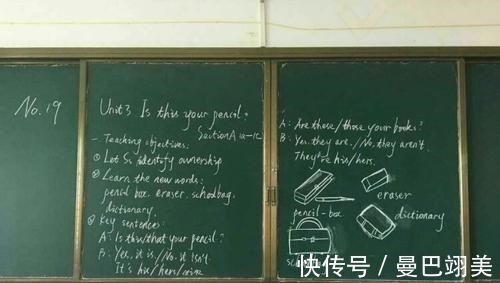 No. 19
Unit 3 Is this your pencil?
Section A 1a-1c
- Teaching objectives:
① Let Ss identify ownership
② Learn the new words:
pencil box, eraser, schoolbag,
dictionary.
③ Key sentences:
A: Is this/that your pencil?
B: Yes, it is./No, it isn't.
It's his/hers/mine
A: Are these/those your books?
B: Yes, they are./No, they aren't.
They're his/hers.
eraser
pencil-box
dictionary
快传号/曼巴翊美